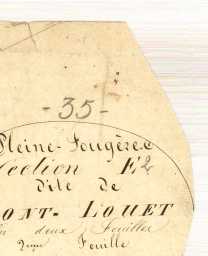 - 35 -
Pleine-Fougères
Section E2
dite de
MONT-LOUET
en deux feuilles
2eme Feuille